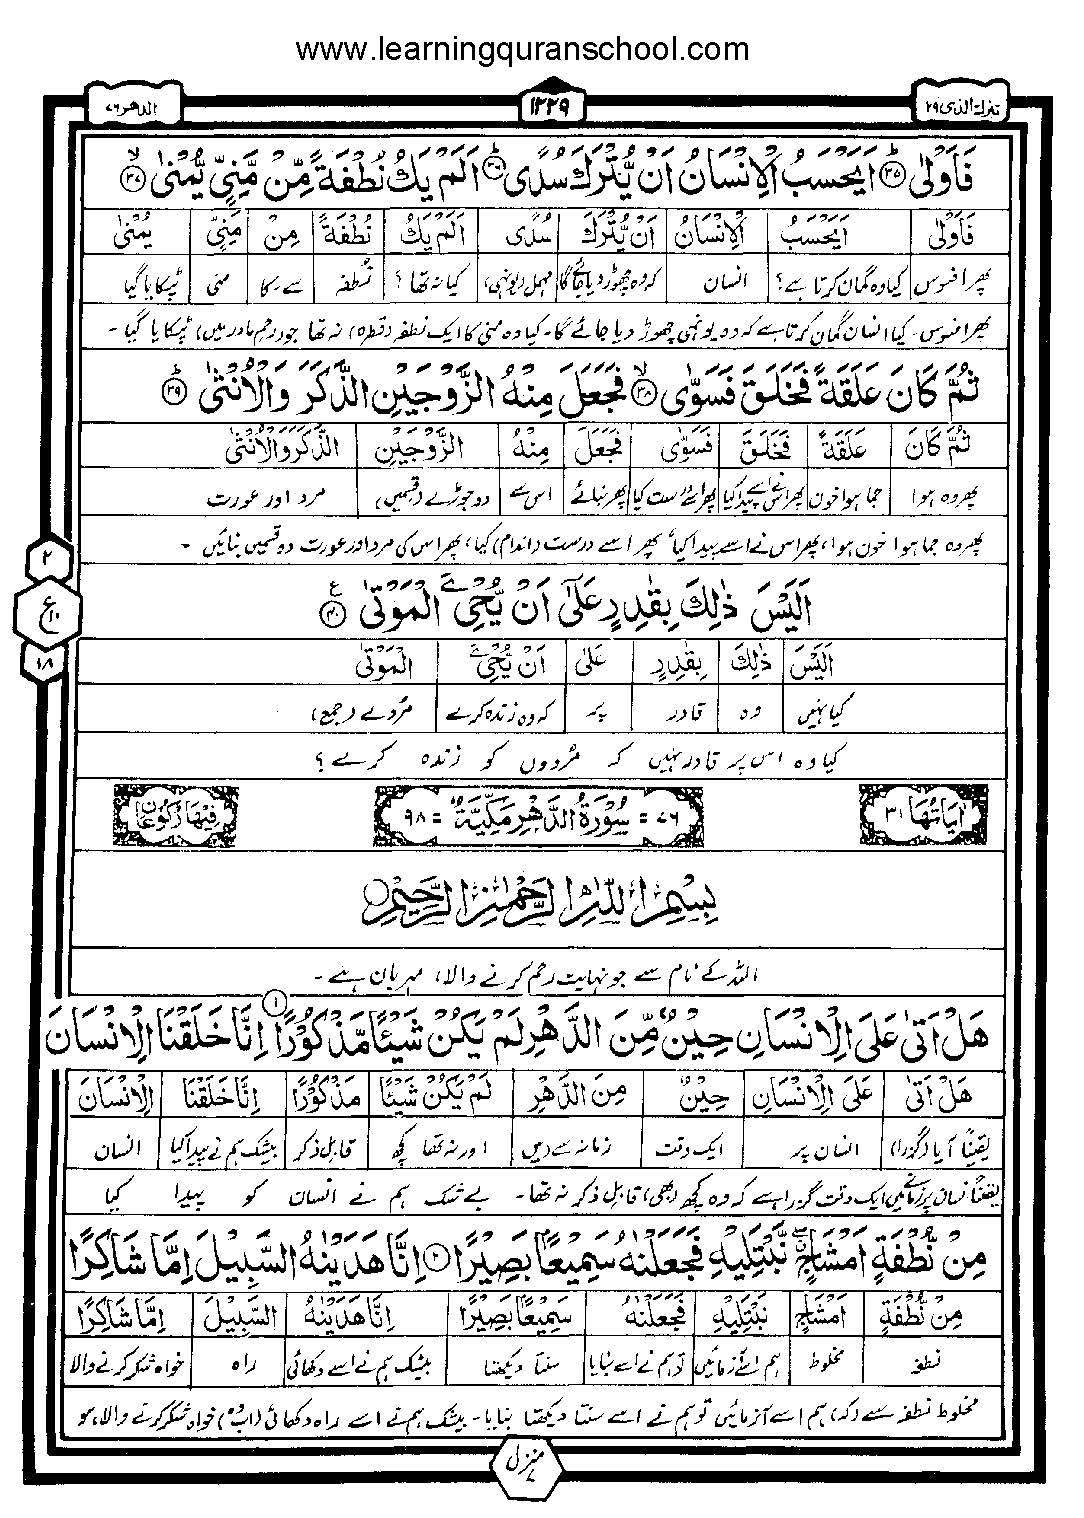 www.learningquranschool.com
تبٰرك الذى ٢٩
١٢٢٩
الدهر ٧٦
فَاَوْلٰى ﴿٣٥﴾ اَيَحْسَبُ الْاِنْسَانُ اَنْ يُّتْرَكَ سُدًى ﴿٣٦﴾ اَلَمْ يَكُ نُطْفَةً مِّنْ مَّنِيٍّ يُّمْنٰى ﴿٣٧﴾
فَاَوْلٰى اَيَحْسَبُ الْاِنْسَانُ اَنْ يُّتْرَكَ سُدًى اَلَمْ يَكُ نُطْفَةً مِنْ مَّنِيٍّ يُمْنٰى
پھر افسوس کیا وہ گمان کرتا ہے؟ انسان کہ وہ چھوڑ دیا جائیگا مہمل (یونہی) کیا نہ تھا؟ نُطفہ سے۔ کا منی ٹپکایا گیا
پھر افسوس۔ کیا انسان گمان کرتا ہے کہ وہ یونہی چھوڑ دیا جائے گا۔ کیا وہ منی کا ایک نطفہ (قطرہ) نہ تھا جو (رحم مادر میں) ٹپکایا گیا۔
ثُمَّ كَانَ عَلَقَةً فَخَلَقَ فَسَوّٰى ﴿٣٨﴾ فَجَعَلَ مِنْهُ الزَّوْجَيْنِ الذَّكَرَ وَالْاُنْثٰى ﴿٣٩﴾
ثُمَّ كَانَ عَلَقَةً فَخَلَقَ فَسَوّٰى فَجَعَلَ مِنْهُ الزَّوْجَيْنِ الذَّكَرَ وَالْاُنْثٰى
پھر وہ ہوا جما ہوا خون پھر اس نے اسے پیدا کیا پھر اسے درست کیا پھر بنائے اس سے دو جوڑے (قسمیں) مرد اور عورت
پھر وہ جما ہوا خون ہوا، پھر اس نے اسے پیدا کیا پھر اسے درست (اندام) کیا، پھر اس کی مرد اور عورت دو قسمیں بنائیں۔
اَلَيْسَ ذٰلِكَ بِقٰدِرٍ عَلٰٓى اَنْ يُّحْيِۦَ الْمَوْتٰى ﴿٤٠﴾
٢
ع
١٨
اَلَيْسَ ذٰلِكَ بِقٰدِرٍ عَلٰى اَنْ يُّحْيِۦَ الْمَوْتٰى
کیا نہیں وہ قادر پر کہ وہ زندہ کرے مُردے (جمع)
کیا وہ اس پر قادر نہیں کہ مُردوں کو زندہ کرے؟
اٰيَاتُهَا ٣١
٧٦ = سُوْرَةُ الدَّهْرِ مَكِّيَّةٌ = ٩٨
فِيْهَا رُكُوْعَانِ ٢
بِسْمِ اللّٰهِ الرَّحْمٰنِ الرَّحِيْمِ
اللہ کے نام سے جو نہایت رحم کرنے والا، مہربان ہے۔
هَلْ اَتٰى عَلَى الْاِنْسَانِ حِيْنٌ مِّنَ الدَّهْرِ لَمْ يَكُنْ شَيْـًٔا مَّذْكُوْرًا ﴿١﴾ اِنَّا خَلَقْنَا الْاِنْسَانَ
هَلْ اَتٰى عَلَى الْاِنْسَانِ حِيْنٌ مِنَ الدَّهْرِ لَمْ يَكُنْ شَيْـًٔا مَذْكُوْرًا اِنَّا خَلَقْنَا الْاِنْسَانَ
یقیناً آیا (گزرا) انسان پر ایک وقت زمانہ سے (میں) اور نہ تھا کچھ قابل ذکر بیشک ہم نے پیدا کیا انسان
یقیناً انسان پر زمانے میں ایک وقت گزرا ہے کہ وہ کچھ (بھی) قابل ذکر نہ تھا۔ بے شک ہم نے انسان کو پیدا کیا
مِنْ نُّطْفَةٍ اَمْشَاجٍ نَّبْتَلِيْهِ فَجَعَلْنٰهُ سَمِيْعًۢا بَصِيْرًا ﴿٢﴾ اِنَّا هَدَيْنٰهُ السَّبِيْلَ اِمَّا شَاكِرًا
مِنْ نُّطْفَةٍ اَمْشَاجٍ نَبْتَلِيْهِ فَجَعَلْنٰهُ سَمِيْعًۢا بَصِيْرًا اِنَّا هَدَيْنٰهُ السَّبِيْلَ اِمَّا شَاكِرًا
نطفہ مخلوط ہم اسے آزمائیں تو ہم نے اسے بنایا سنتا دیکھتا بیشک ہم نے اسے دکھائی راہ خواہ شکر کرنے والا
مخلوط نطفہ سے (کہ) ہم اسے آزمائیں تو ہم نے اسے سنتا دیکھتا بنایا۔ بیشک ہم نے اسے راہ دکھائی (اب وہ) خواہ شکر کرنے والا ہو
منزل ٧